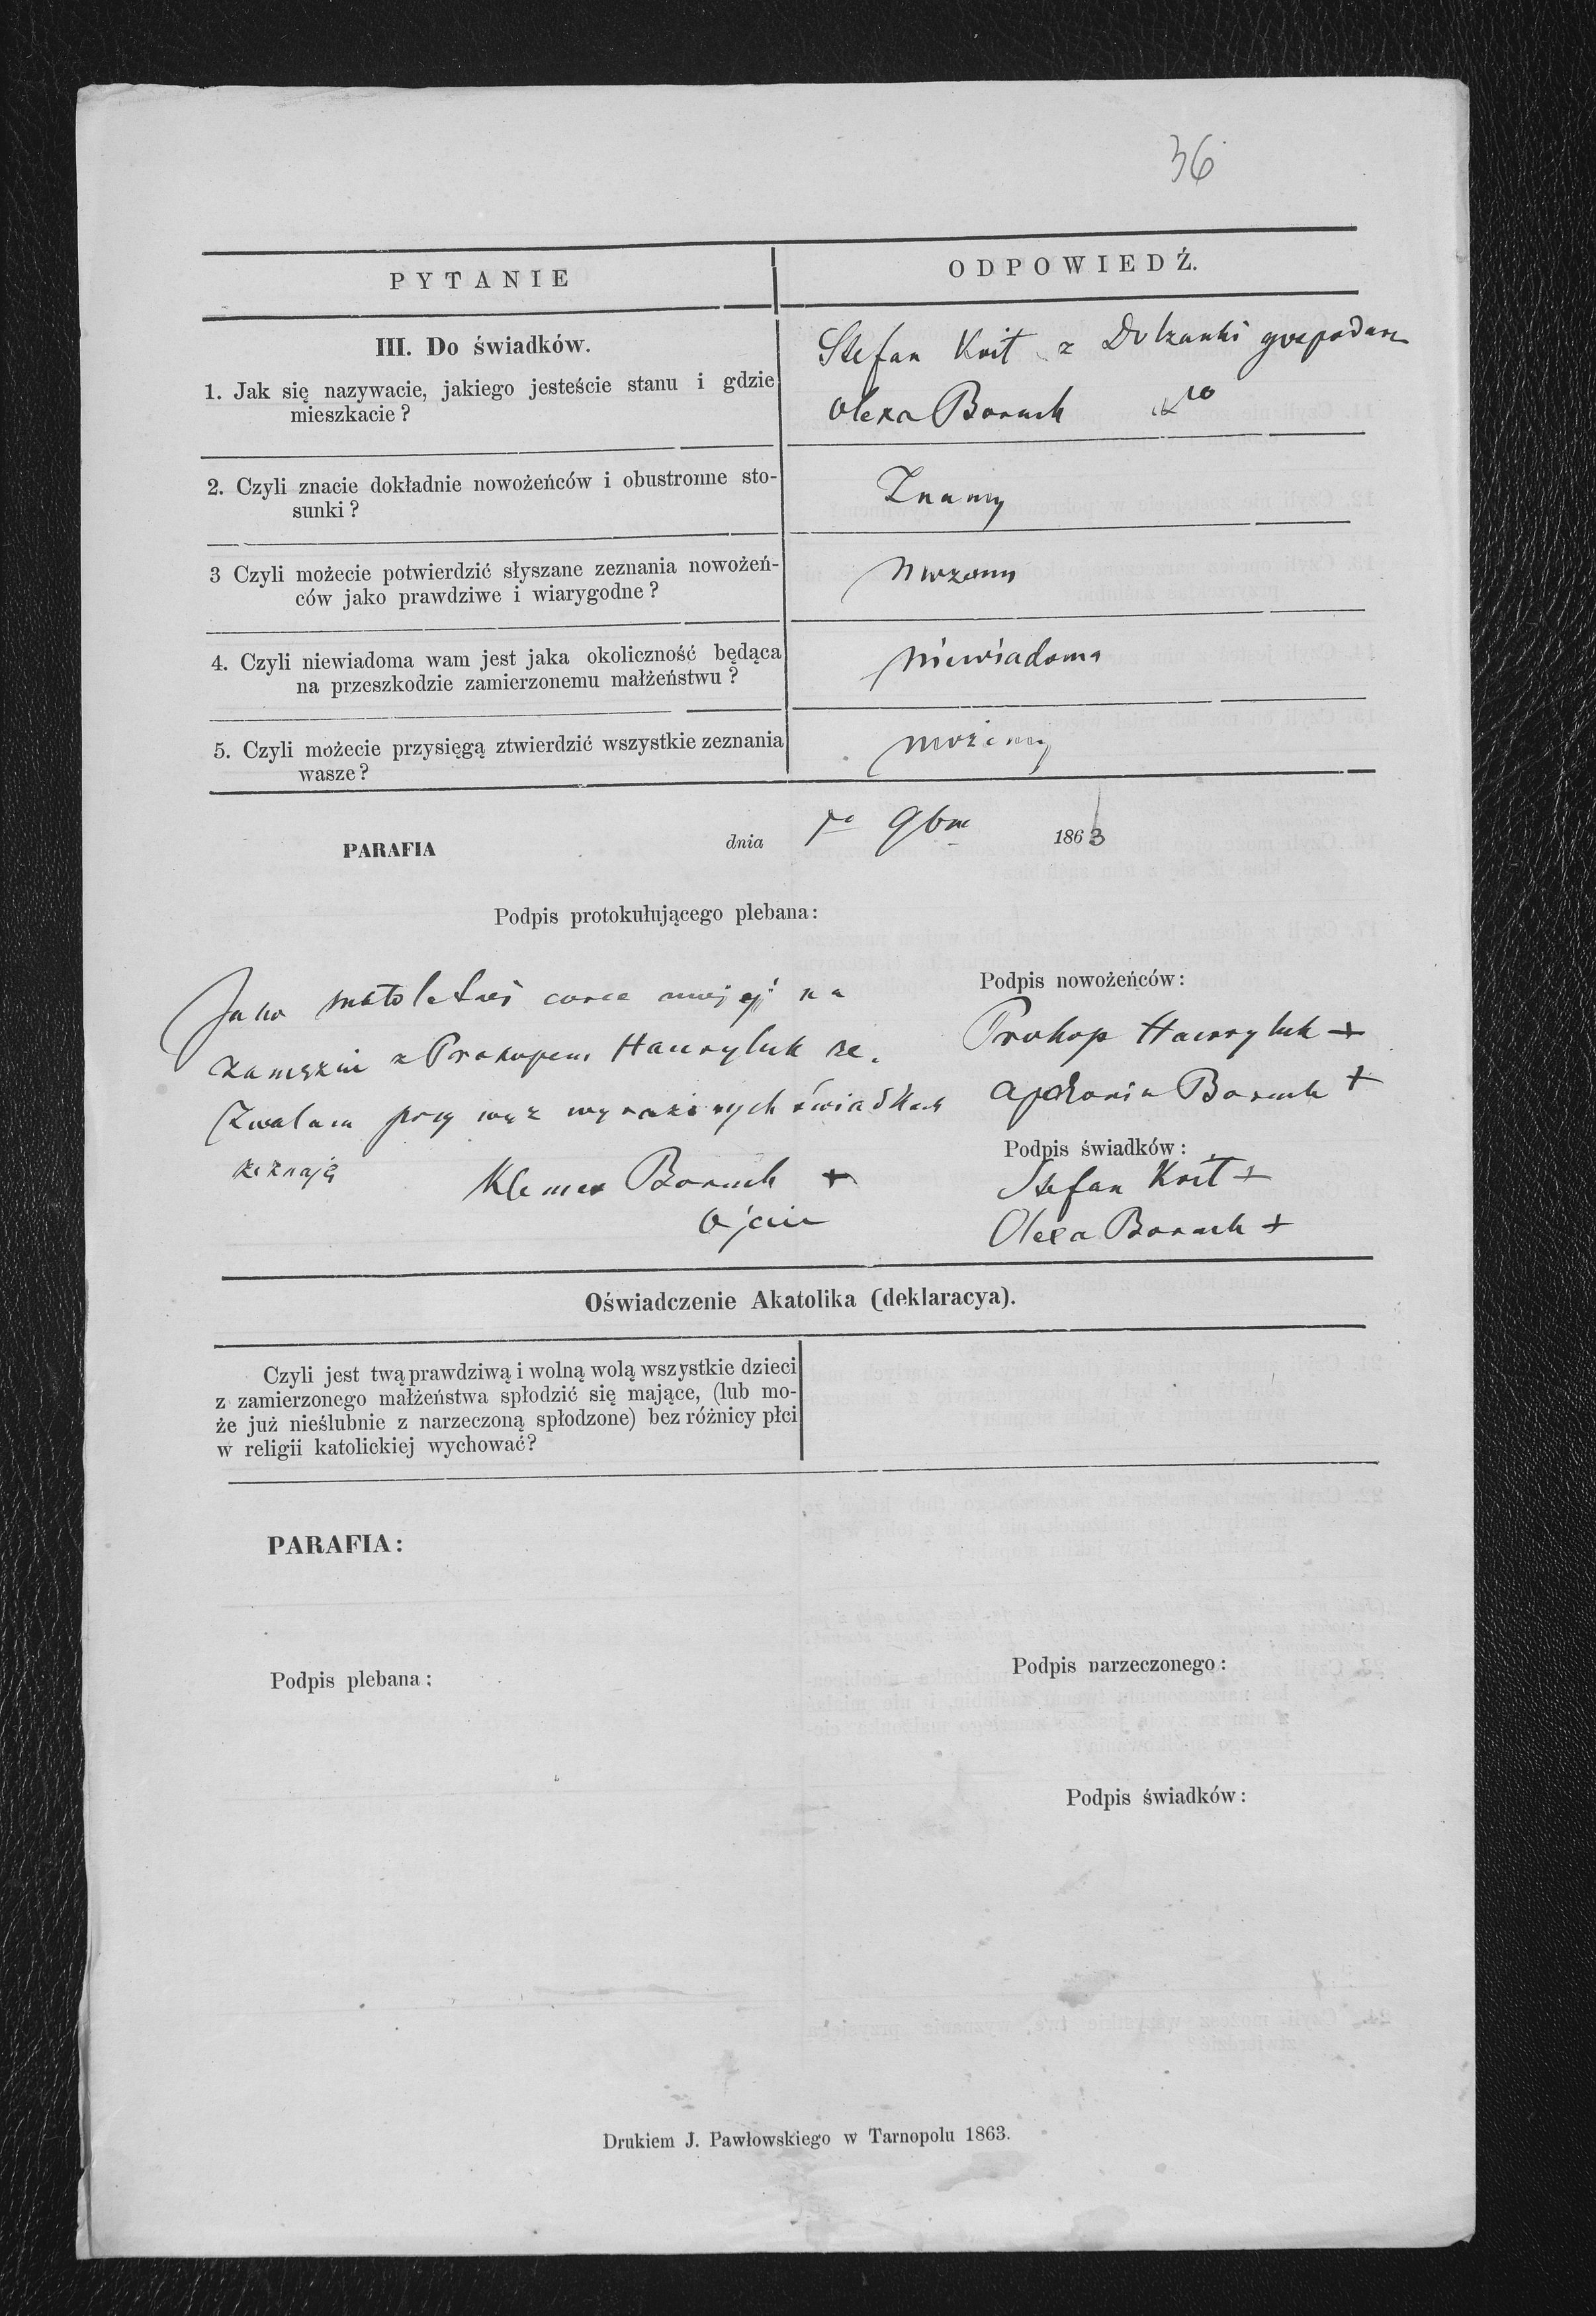 36
PYTANIE
ODPOWIEDŹ.
III. Do świadków.
1. Jak się nazywacie, jakiego jesteście stanu i gdzie
mieszkacie?
Stefan Knit z Dolzanki gospodarz
Olexa Boruch dto
2. Czyli znacie dokładnie nowożeńców i obustronne sto-
sunki?
Znamy
3 Czyli możecie potwierdzić słyszane zeznania nowożeń-
ców jako prawdziwe i wiarygodne?
możemy
4. Czyli niewiadoma wam jest jaka okoliczność będąca
na przeszkodzie zamierzonemu małżeństwu?
niewiadoma
5. Czyli możecie przysięgą ztwierdzić wszystkie zeznania
wasze?
możemy
PARAFIA
dnia 9bra 1863
Podpis protokułującego plebana:
Jako małoletni corce mojej na
zamęzcie z Prokopem Hawryluk ze.
zwalam przy wyrazonych świadkach
zeznaję
Klemes Boruch +
Ojciec
Podpis nowożeńców:
Prokop Hawryluk +
Apolonia Boruch +
Podpis świadków:
Stefan Knit +
Olexa Boruch +
Oświadczenie Akatolika (deklaracya).
Czyli jest twą prawdziwą i wolną wolą wszystkie dzieci
z zamierzonego małżeństwa spłodzić się mające, (lub mo-
że już nieślubnie z narzeczoną spłodzone) bez różnicy płci
w religii katolickiej wychować?
PARAFIA:
Podpis plebana:
Podpis narzeczonego:
Podpis świadków:
Drukiem J. Pawłowskiego w Tarnopolu 1863.